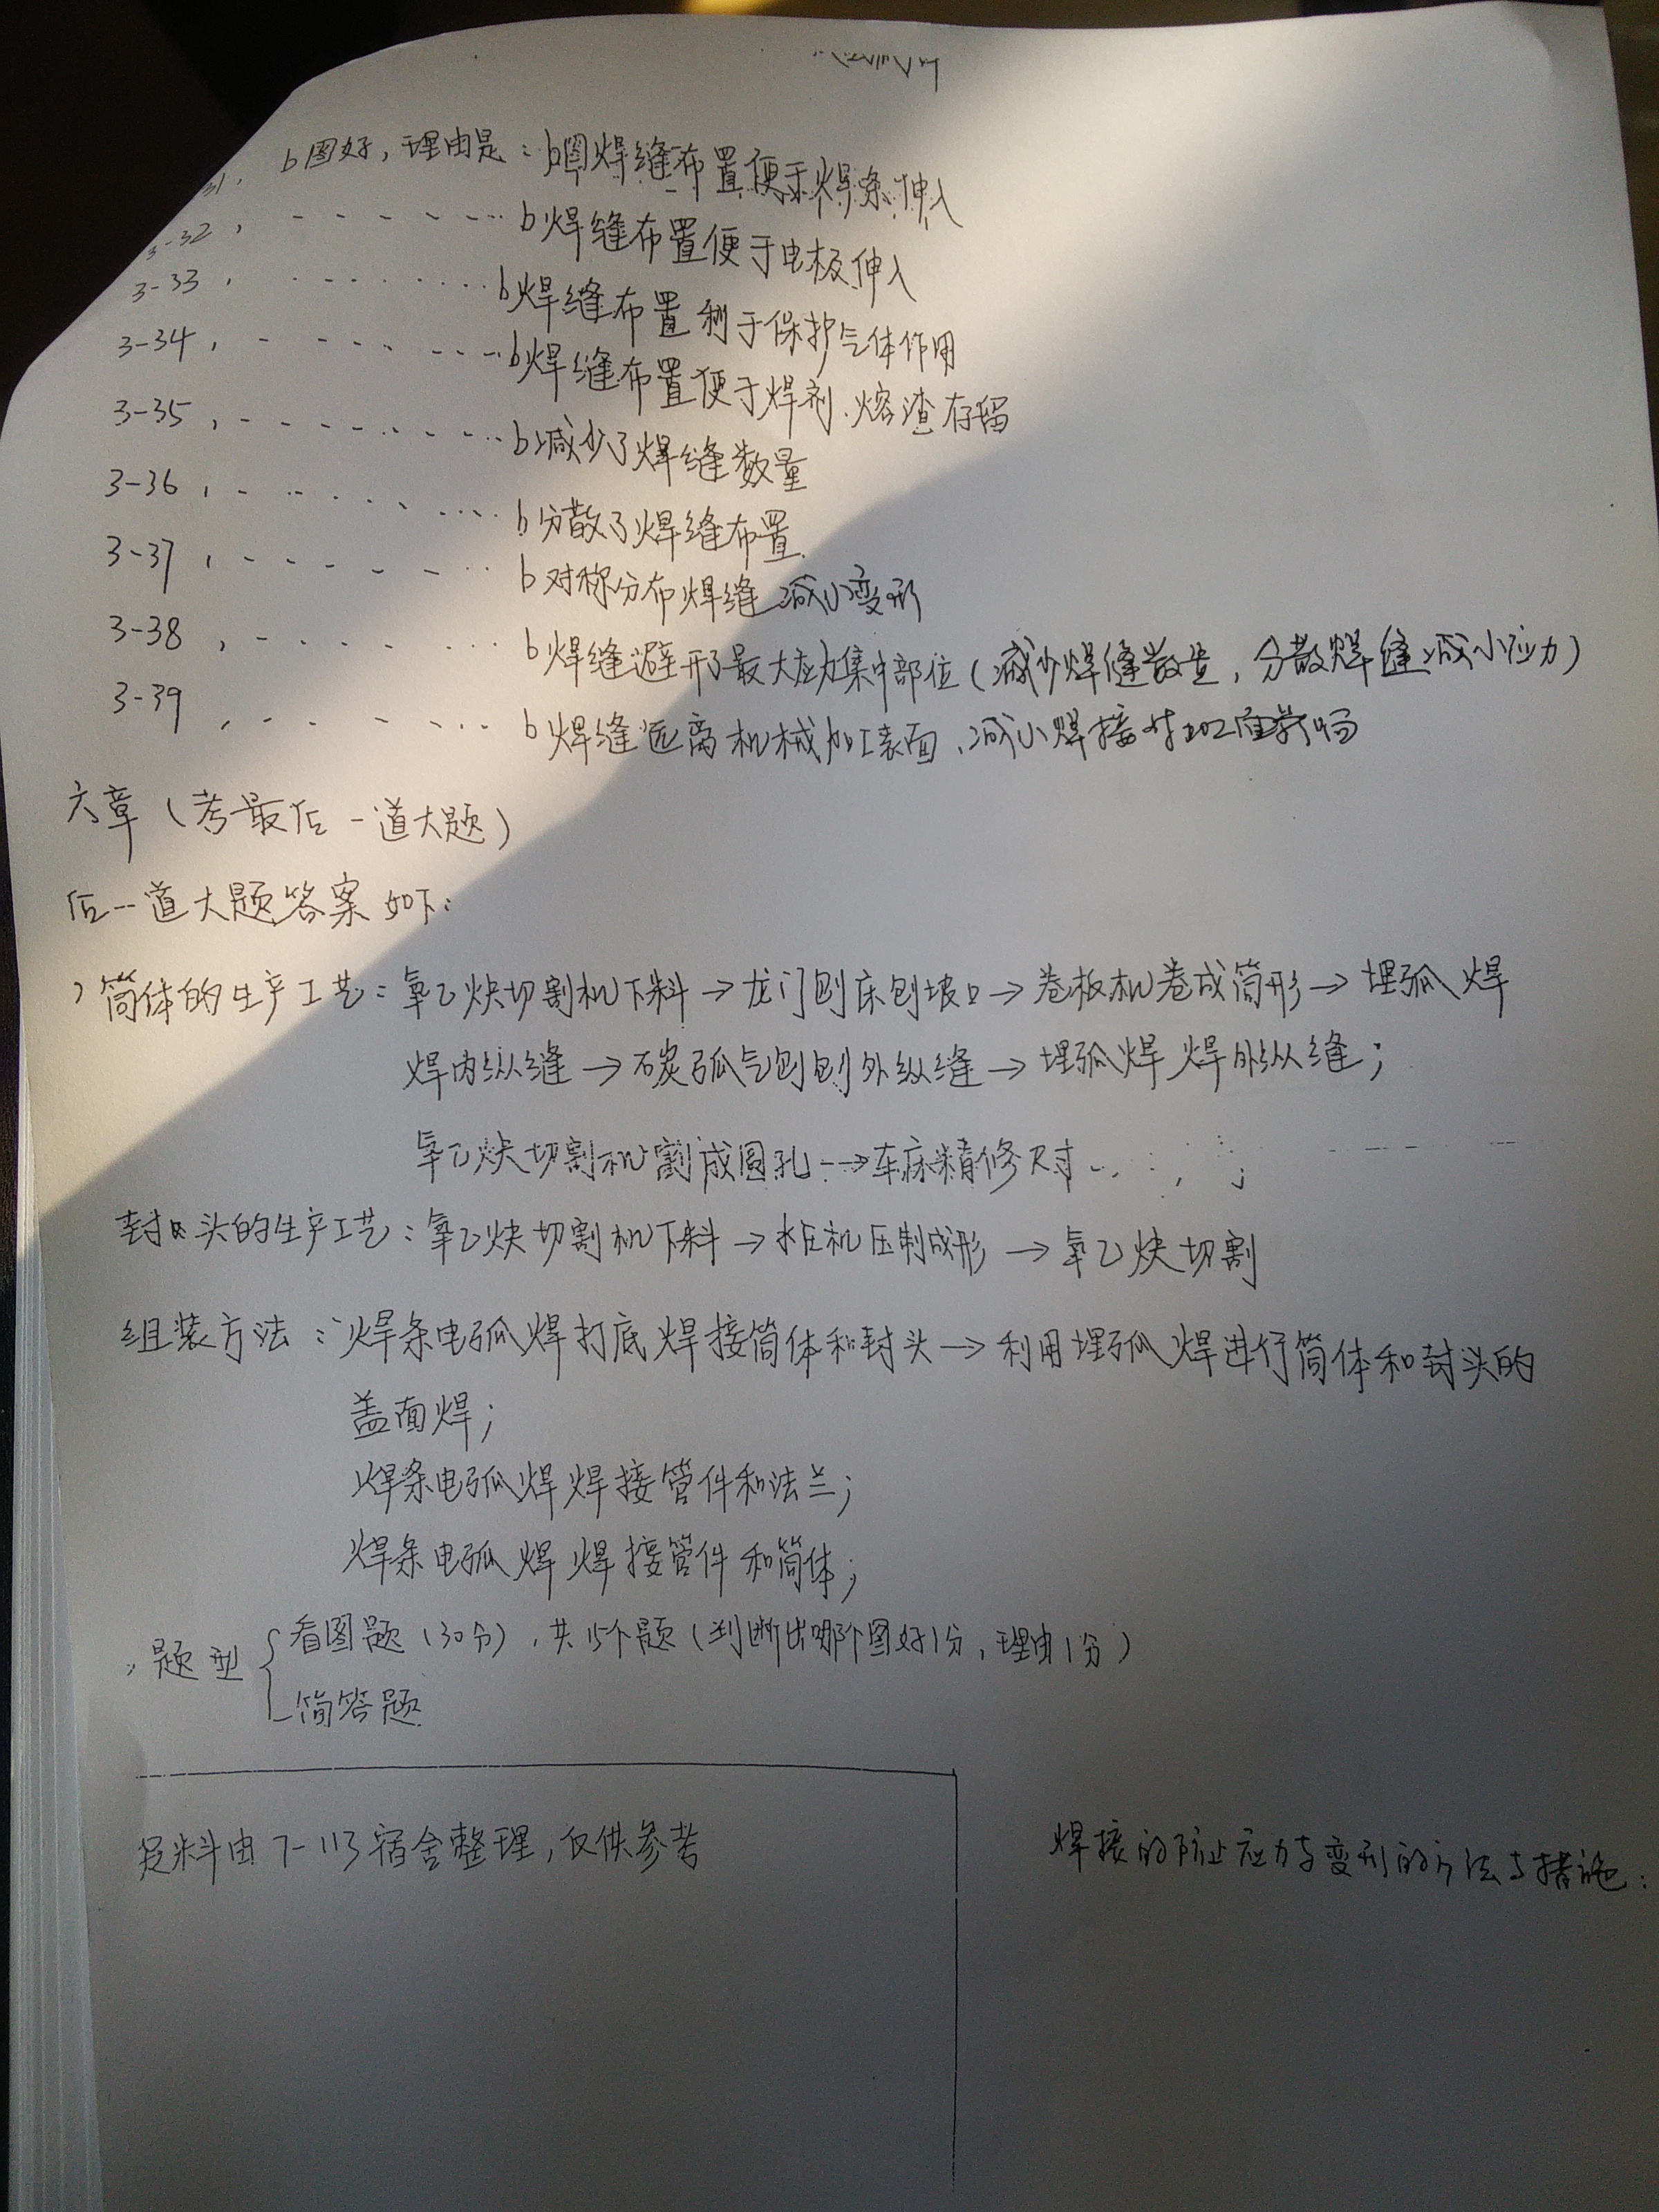 31, b图好,理由是:b图焊缝布置便于焊条伸入
3-32, - - - - - - b焊缝布置便于电极伸入
3-33, - - - - - - b焊缝布置利于保护气体作用
3-34, - - - - - - b焊缝布置便于焊剂、熔渣存留
3-35, - - - - - - b减少了焊缝数量
3-36, - - - - - - b分散了焊缝布置
3-37, - - - - - - b对称分布焊缝 减小变形
3-38, - - - - - - b焊缝避开了最大应力集中部位(减少焊缝数量,分散焊缝减小应力)
3-39, - - - - - - b焊缝远离机械加工表面,减小焊接对加工面影响
六章(考最后一道大题)
后一道大题答案如下:
)筒体的生产工艺:氧乙炔切割机下料→龙门刨床刨坡口→卷板机卷成筒形→埋弧焊
焊内纵缝→碳弧气刨刨外纵缝→埋弧焊焊外纵缝;
氧乙炔切割机割成圆孔→车床精修尺寸
封头的生产工艺:氧乙炔切割机下料→水压机压制成形→氧乙炔切割
组装方法:焊条电弧焊打底焊接筒体和封头→利用埋弧焊进行筒体和封头的
盖面焊;
焊条电弧焊焊接管件和法兰;
焊条电弧焊焊接管件和筒体;
题型 看图题(30分),共15个题(判断出哪个图好1分,理由1分)
简答题
资料由7-113宿舍整理,仅供参考
焊接的防止应力与变形的方法与措施: